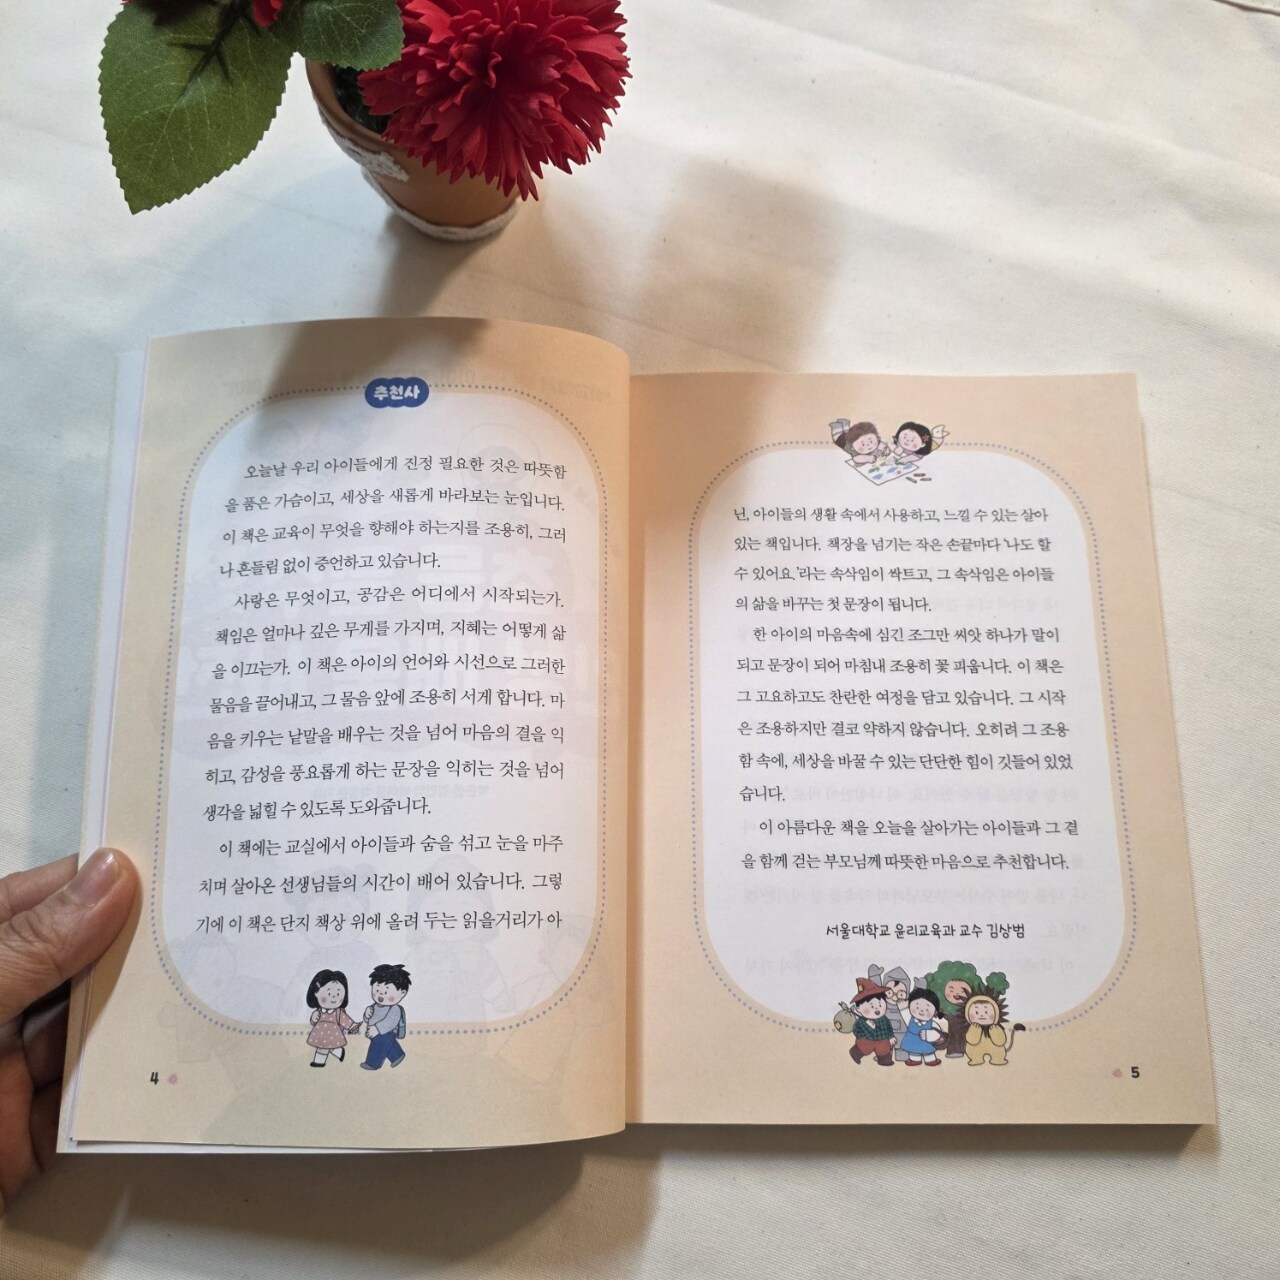 추천사
오늘날 우리 아이들에게 진정 필요한 것은 따뜻함
을 품은 가슴이고, 세상을 새롭게 바라보는 눈입니다.
이 책은 교육이 무엇을 향해야 하는지를 조용히, 그러
나 흔들림 없이 증언하고 있습니다.
사랑은 무엇이고, 공감은 어디에서 시작되는가.
책임은 얼마나 깊은 무게를 가지며, 지혜는 어떻게 삶
을 이끄는가. 이 책은 아이의 언어와 시선으로 그러한
물음을 끌어내고, 그 물음 앞에 조용히 서게 합니다. 마
음을 키우는 낱말을 배우는 것을 넘어 마음의 결을 익
히고, 감성을 풍요롭게 하는 문장을 익히는 것을 넘어
생각을 넓힐 수 있도록 도와줍니다.
이 책에는 교실에서 아이들과 숨을 섞고 눈을 마주
치며 살아온 선생님들의 시간이 배어 있습니다. 그렇
기에 이 책은 단지 책상 위에 올려 두는 읽을거리가 아
4
닌, 아이들의 생활 속에서 사용하고, 느낄 수 있는 살아
있는 책입니다. 책장을 넘기는 작은 손끝마다 '나도 할
수 있어요.'라는 속삭임이 싹트고, 그 속삭임은 아이들
의 삶을 바꾸는 첫 문장이 됩니다.
한 아이의 마음속에 심긴 조그만 씨앗 하나가 말이
되고 문장이 되어 마침내 조용히 꽃 피웁니다. 이 책은
그 고요하고도 찬란한 여정을 담고 있습니다. 그 시작
은 조용하지만 결코 약하지 않습니다. 오히려 그 조용
함 속에, 세상을 바꿀 수 있는 단단한 힘이 깃들어 있었
습니다.
이 아름다운 책을 오늘을 살아가는 아이들과 그 곁
을 함께 걷는 부모님께 따뜻한 마음으로 추천합니다.
서울대학교 윤리교육과 교수 김상범
5